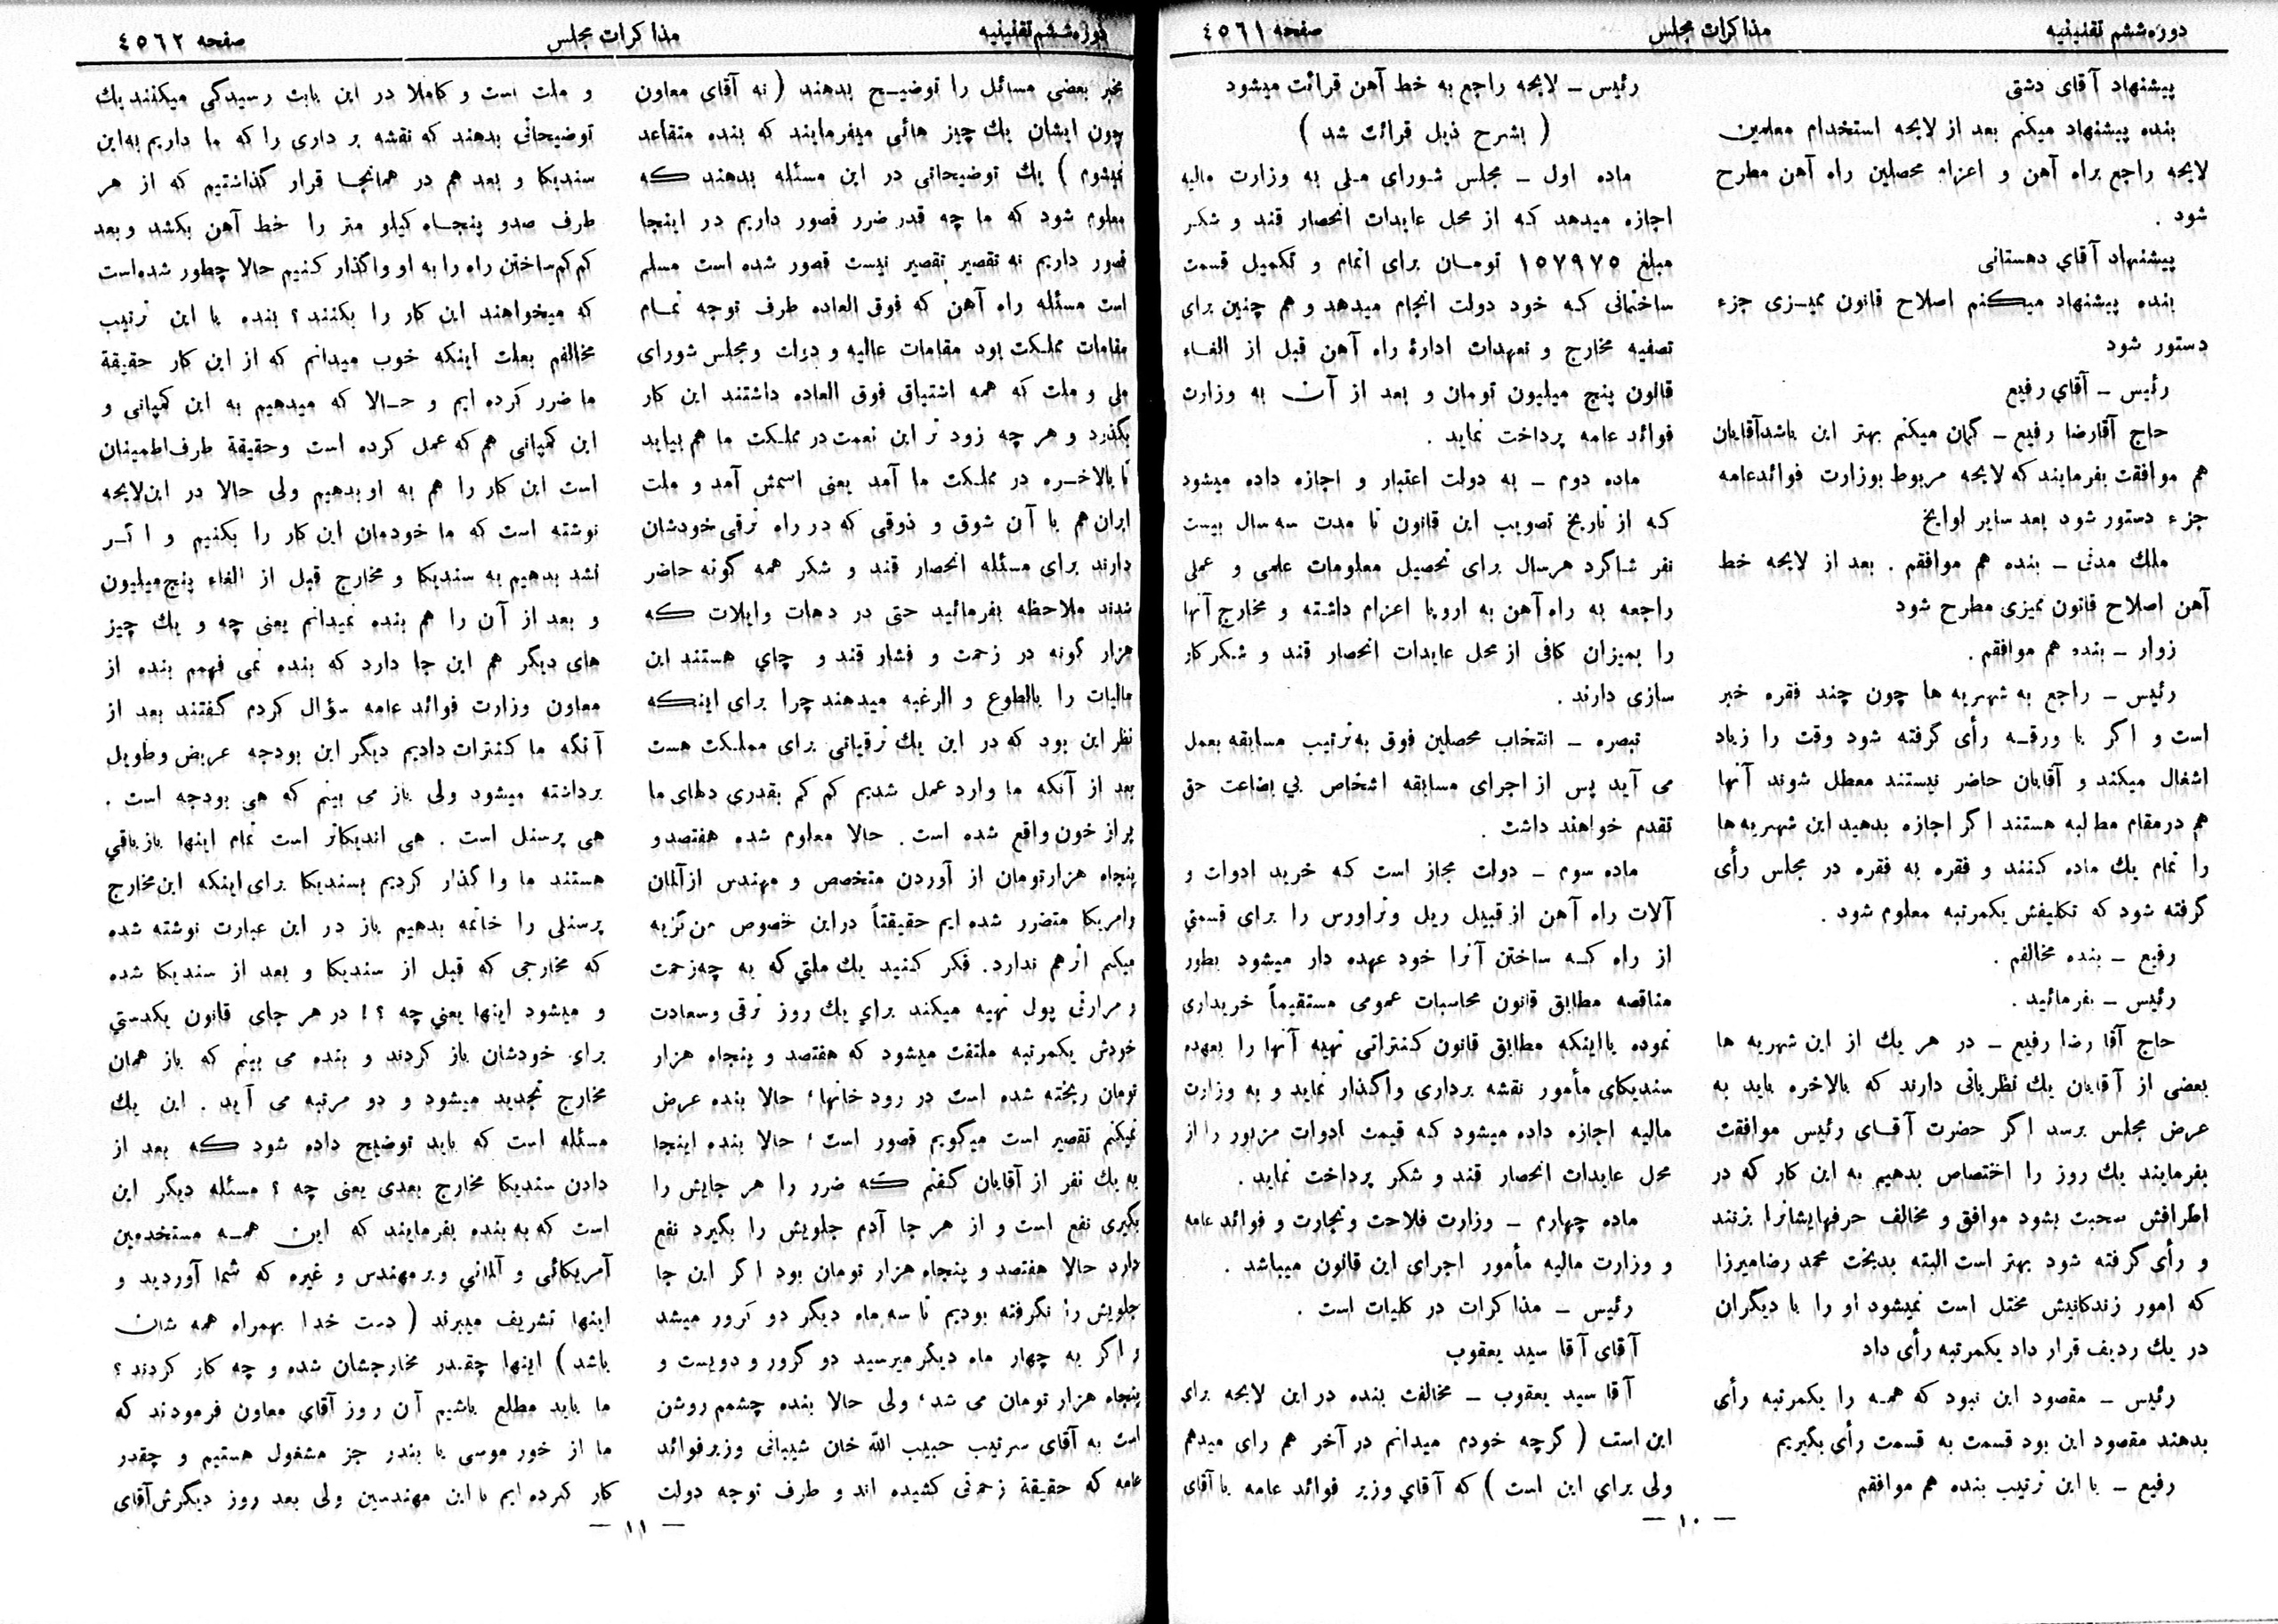 دوره ششم تقنینیه
مذاکرات مجلس
صفحه ٤٥٦١
پیشنهاد آقای دشتی
بنده پیشنهاد میکنم بعد از لایحه استخدام معلمین
لایحه راجع براه آهن و اعزام محصلین راه آهن مطرح
شود .
پیشنهاد آقاي دهستانی
بنده پیشنهاد میکنم اصلاح قانون ممیزی جزء
دستور شود
رئیس ـ آقاي رفیع
حاج آقارضا رفیع ـ گمان میکنم بهتر این باشدآقایان
هم موافقت بفرمایند که لایحه مربوط بوزارت فوائدعامه
جزء دستور شود بعد سایر لوایح
ملك مدنی ـ بنده هم موافقم . بعد از لایحه خط
آهن اصلاح قانون ممیزی مطرح شود
زوار ـ بنده هم موافقم .
رئیس ـ راجع به شهریه ها چون چند فقره خبر
است و اگر با ورقه رأی گرفته شود وقت را زیاد
اشغال میکند و آقایان حاضر نیستند معطل شوند آنها
هم درمقام مطالبه هستند اگر اجازه بدهید این شهریه ها
را تمام یك ماده کنند و فقره به فقره در مجلس رأی
گرفته شود که تکلیفش یکمرتبه معلوم شود .
رفیع ـ بنده مخالفم .
رئیس ـ بفرمائید .
حاج آقا رضا رفیع ـ در هر یك از این شهریه ها
بعضی از آقایان یك نظریاتی دارند که بالاخره باید به
عرض مجلس برسد اگر حضرت آقای رئیس موافقت
بفرمایند یك روز را اختصاص بدهیم به این کار که در
اطرافش صحبت بشود موافق و مخالف حرفهایشانرا بزنند
و رأی گرفته شود بهتر است البته بدبخت محمد رضامیرزا
که امور زندکانیش مختل است نمیشود او را با دیگران
در یك ردیف قرار داد یکمرتبه رأی داد
رئیس ـ مقصود این نبود که همه را یکمرتبه رأی
بدهند مقصود این بود قسمت به قسمت رأی بگیریم
رفیع ـ با این ترتیب بنده هم موافقم
رئیس ـ لایحه راجع به خط آهن قرائت میشود
( بشرح ذیل قرائت شد )
ماده اول ـ مجلس شورای ملی به وزارت مالیه
اجازه میدهد که از محل عایدات انحصار قند و شکر
مبلغ ١٥٧٩٧٥ تومان برای اتمام و تکمیل قسمت
ساختمانی که خود دولت انجام میدهد و هم چنین برای
تصفیه مخارج و تعهدات ادارۀ راه آهن قبل از الغاء
قانون پنج میلیون تومان و بعد از آن به وزارت
فوائد عامه پرداخت نماید .
ماده دوم ـ به دولت اعتبار و اجازه داده میشود
که از تاریخ تصویب این قانون تا مدت سه سال بیست
نفر شاگرد هرسال برای تحصیل معلومات علمی و عملی
راجعه به راه آهن به اروپا اعزام داشته و مخارج آنها
را بمیزان کافی از محل عایدات انحصار قند و شکر کار
سازی دارند .
تبصره ـ انتخاب محصلین فوق به ترتیب مسابقه بعمل
می آید پس از اجرای مسابقه اشخاص بي بضاعت حق
تقدم خواهند داشت .
ماده سوم ـ دولت مجاز است که خرید ادوات و
آلات راه آهن از قبیل ریل وتراورس را برای قسمتي
از راه که ساختن آنرا خود عهده دار میشود بطور
مناقصه مطابق قانون محاسبات عمومی مستقیماً خریداری
نموده یا اینکه مطابق قانون کنتراتی تهیه آنها را بعهده
سندیکای مأمور نقشه برداری واگذار نماید و به وزارت
مالیه اجازه داده میشود که قیمت ادوات مزبور را از
محل عایدات انحصار قند و شکر پرداخت نماید .
ماده چهارم ـ وزارت فلاحت وتجارت و فوائد عامه
و وزارت مالیه مأمور اجرای این قانون میباشد .
رئیس ـ مذاکرات در کلیات است .
آقای آقا سید یعقوب
آقا سید یعقوب ـ مخالفت بنده در این لایحه برای
این است ( گرچه خودم میدانم در آخر هم رای میدهم
ولی براي این است ) که آقاي وزیر فوائد عامه یا آقای
ـ ١٠ ـ
دوره ششم تقنینیه
مذاکرات مجلس
صفحه ٤٥٦٢
مخبر بعضی مسائل را توضیح بدهند ( نه آقای معاون
چون ایشان یك چیز هائی میفرمایند که بنده متقاعد
نمیشوم ) یك توضیحاتی در این مسئله بدهند که
معلوم شود که ما چه قدر ضرر قصور داریم در اینجا
قصور داریم نه تقصیر تقصیر نیست قصور شده است مسلم
است مسئله راه آهن که فوق العاده طرف توجه تمام
مقامات مملکت بود مقامات عالیه و دولت ومجلس شورای
ملی و ملت که همه اشتیاق فوق العاده داشتند این کار
بگذرد و هر چه زود تر این نعمت در مملکت ما هم بیاید
تا بالاخره در مملکت ما آمد یعنی اسمش آمد و ملت
ایران هم با آن شوق و ذوقی که در راه ترقی خودشان
دارند برای مسئله انحصار قند و شکر همه گونه حاضر
شدند ملاحظه بفرمائید حتی در دهات وایلات که
هزار گونه در زحمت و فشار قند و چاي هستند این
مالیات را بالطوع و الرغبه میدهند چرا برای اینکه
نظر این بود که در این یك ترقیاتی برای مملکت هست
بعد از آنکه ما وارد عمل شدیم کم کم بقدری دلهای ما
پر از خون واقع شده است . حالا معلوم شده هفتصد و
پنجاه هزار تومان از آوردن متخصص و مهندس از آلمان
وامریکا متضرر شده ایم حقیقتاً در این خصوص من گریه
میکنم اثر هم ندارد . فکر کنید یك ملتي که به چه زحمت
و مرارتی پول تهیه میکند براي یك روز ترقی وسعادت
خودش یکمرتبه ملتفت میشود که هفتصد و پنجاه هزار
تومان ریخته شده است در رود خانها، حالا بنده عرض
نمیکنم تقصیر است میگویم قصور است، حالا بنده اینجا
به یك نفر از آقایان گفتم که ضرر را هر جایش را
بگیری نفع است و از هر جا آدم جلویش را بگیرد نفع
دارد حالا هفتصد و پنجاه هزار تومان بود اگر این جا
جلویش را نگرفته بودیم تا سه ماه دیگر دو کرور میشد
و اگر به چهار ماه دیگر میرسید دو کرور و دویست و
پنجاه هزار تومان می شد، ولی حالا بنده چشمم روشن
است به آقای سرتیپ حبیب الله خان شیبانی وزیر فوائد
عامه که حقیقة زحمتی کشیده اند و طرف توجه دولت
و ملت است و کاملا در این بابت رسیدگی میکنند یك
توضیحاتی بدهند که نقشه بر داری را که ما داریم به این
سندیکا و بعد هم در همانجا قرار گذاشتیم که از هر
طرف صدو پنجاه کیلو متر را خط آهن بکشد و بعد
کم کم ساختن راه را به او واگذار کنیم حالا چطور شده است
که میخواهند این کار را بکنند ؟ بنده با این ترتیب
مخالفم بعلت اینکه خوب میدانم که از این کار حقیقة
ما ضرر کرده ایم و حالا که میدهیم به این کمپانی و
این کمپانی هم که عمل کرده است وحقیقة طرف اطمینان
است این کار را هم به او بدهیم ولی حالا در این لایحه
نوشته است که ما خودمان این کار را بکنیم و اگر
نشد بدهیم به سندیکا و مخارج قبل از الغاء پنج میلیون
و بعد از آن را هم بنده نمیدانم یعنی چه و یك چیز
های دیگر هم این جا دارد که بنده نمی فهمم بنده از
معاون وزارت فوائد عامه سؤال کردم گفتند بعد از
آنکه ما کنترات دادیم دیگر این بودجه عریض وطویل
برداشته میشود ولی باز می بینم که هی بودجه است .
هی پرسنل است . هی اندیکاتر است تمام اینها باز باقي
هستند ما واگذار کردیم بسندیکا برای اینکه این مخارج
پرسنلی را خاتمه بدهیم باز در این عبارت نوشته شده
که مخارجی که قبل از سندیکا و بعد از سندیکا شده
و میشود اینها یعني چه ؟ ! در هر جای قانون یکدستي
برای خودشان باز کردند و بنده می بینم که باز همان
مخارج تجدید میشود و دو مرتبه می آید . این یك
مسئله است که باید توضیح داده شود که بعد از
دادن سندیکا مخارج بعدی یعنی چه ؟ مسئله دیگر این
است که به بنده بفرمایند که این همه مستخدمین
آمریکائی و آلماني و پرمهندس و غیره که شما آوردید و
اینها تشریف میبرند ( دست خدا بهمراه همه شان
باشد ) اینها چقدر مخارجشان شده و چه کار کردند ؟
ما باید مطلع باشیم آن روز آقاي معاون فرمودند که
ما از خور موسی یا بندر جز مشغول هستیم و چقدر
کار کرده ایم با این مهندسین ولی بعد روز دیگرش آقای
ـ ١١ ـ